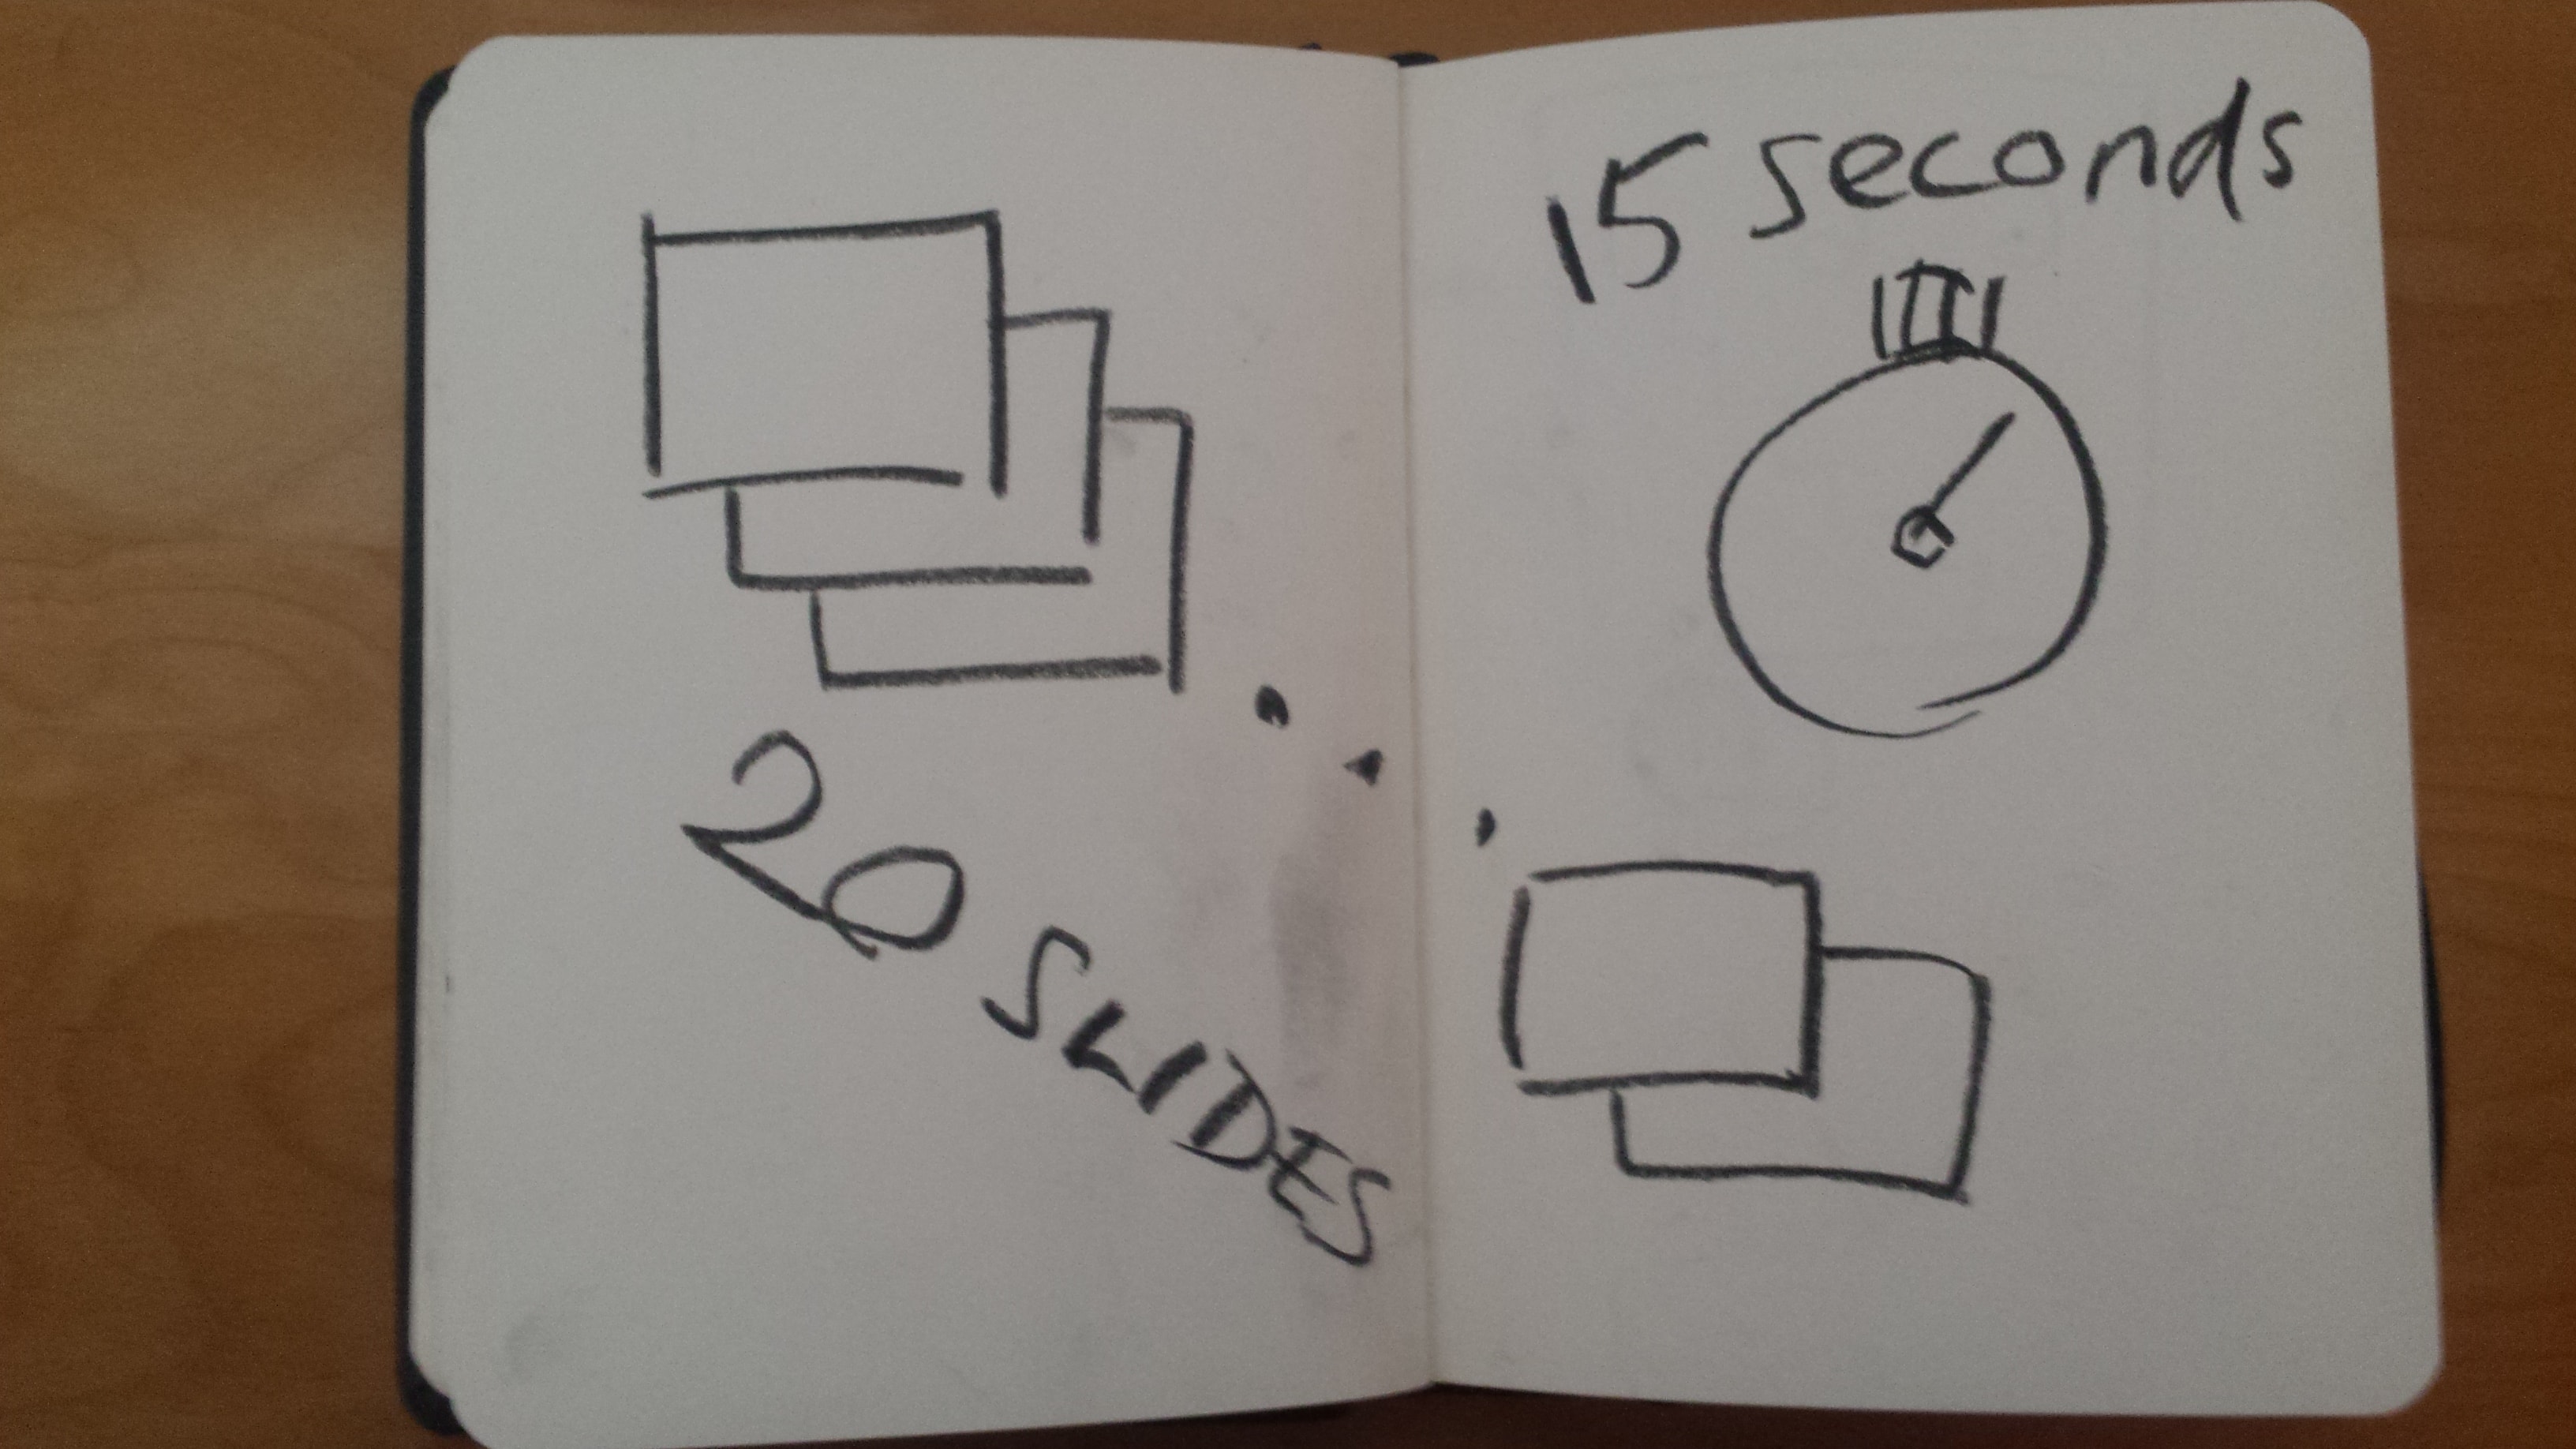 20 SLIDES
15 seconds